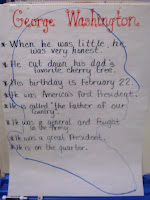 George Washington
When he was little, he
was very honest.
He cut down his dad's
favorite cherry tree.
His birthday is February 22.
He was America's first President.
He is called "the Father of our
Country".
He was a general and fought
in the Army.
He was a great President.
He is on the quarter.